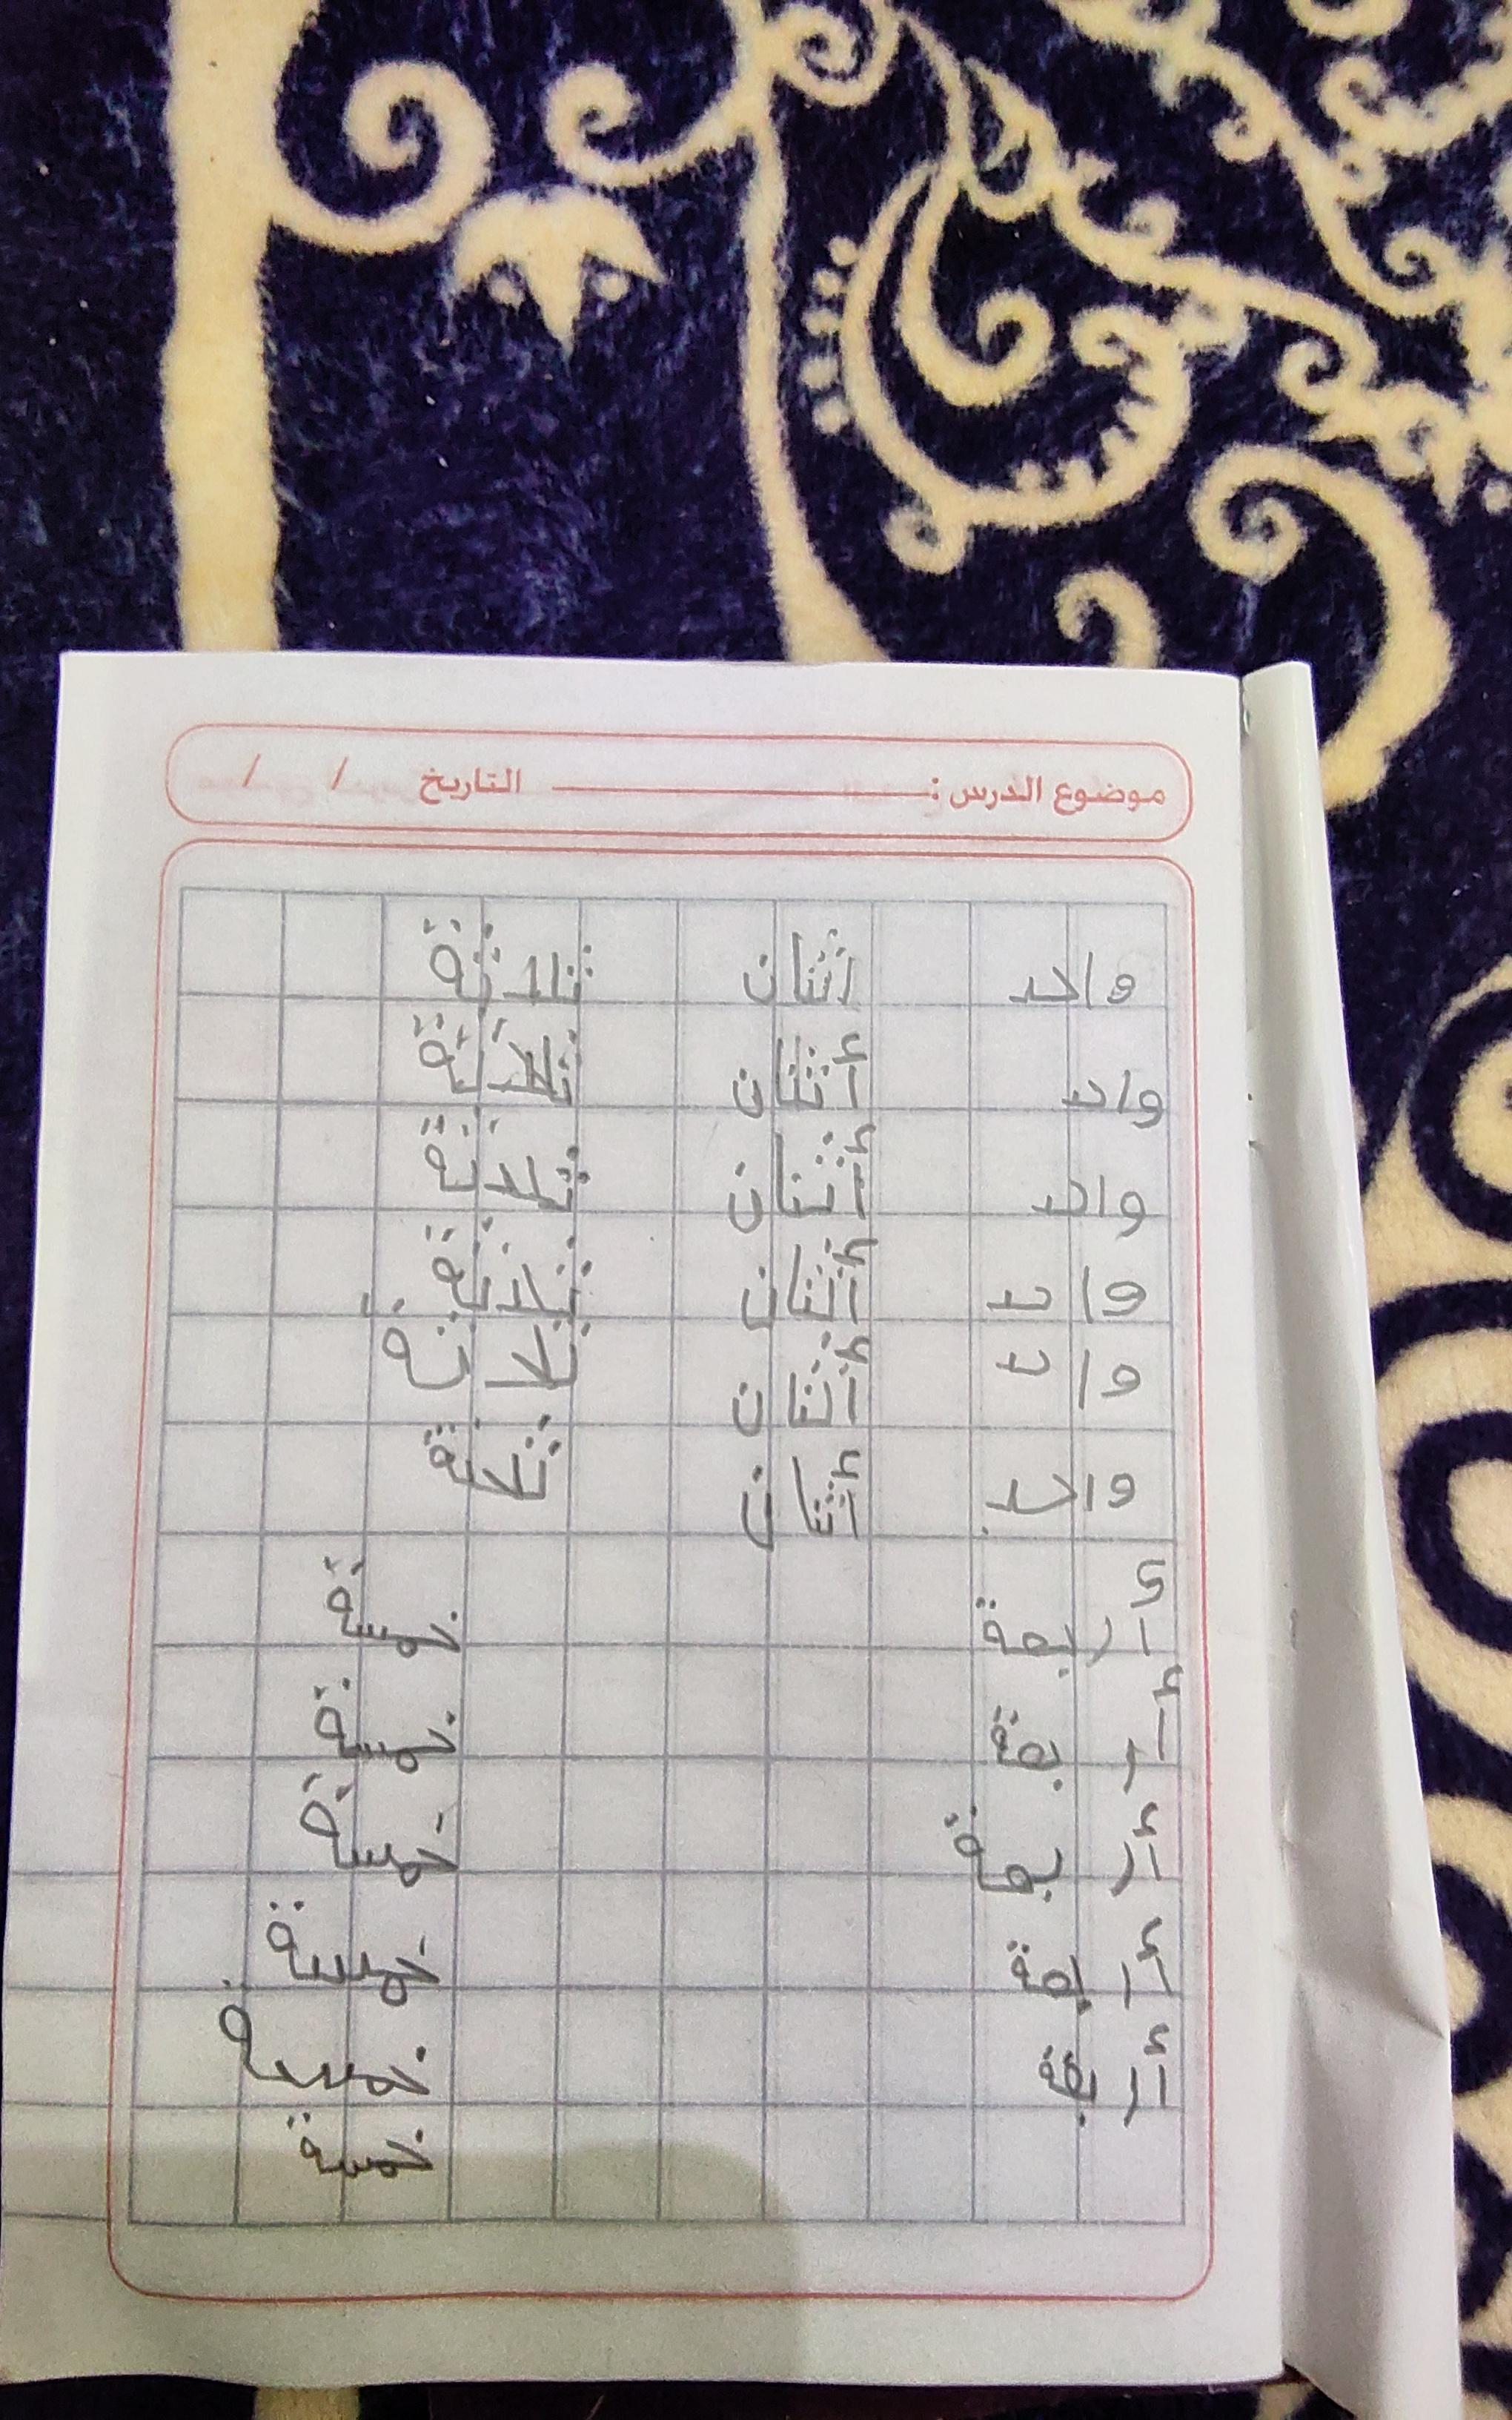 موضوع الدرس : التاريخ / /
واحد اثنان ثلاثة
واد أثنان ثلاثة
واحد أثنان ثلاثة
واحد أثنان ثلاثة
واد أثنان ثلاثة
واحد أثنان ثلاثة
أربعة خمسة
أربعة خمسة
أربعة خمسة
أربعة خمسة
أربعة خمسة
خمسة